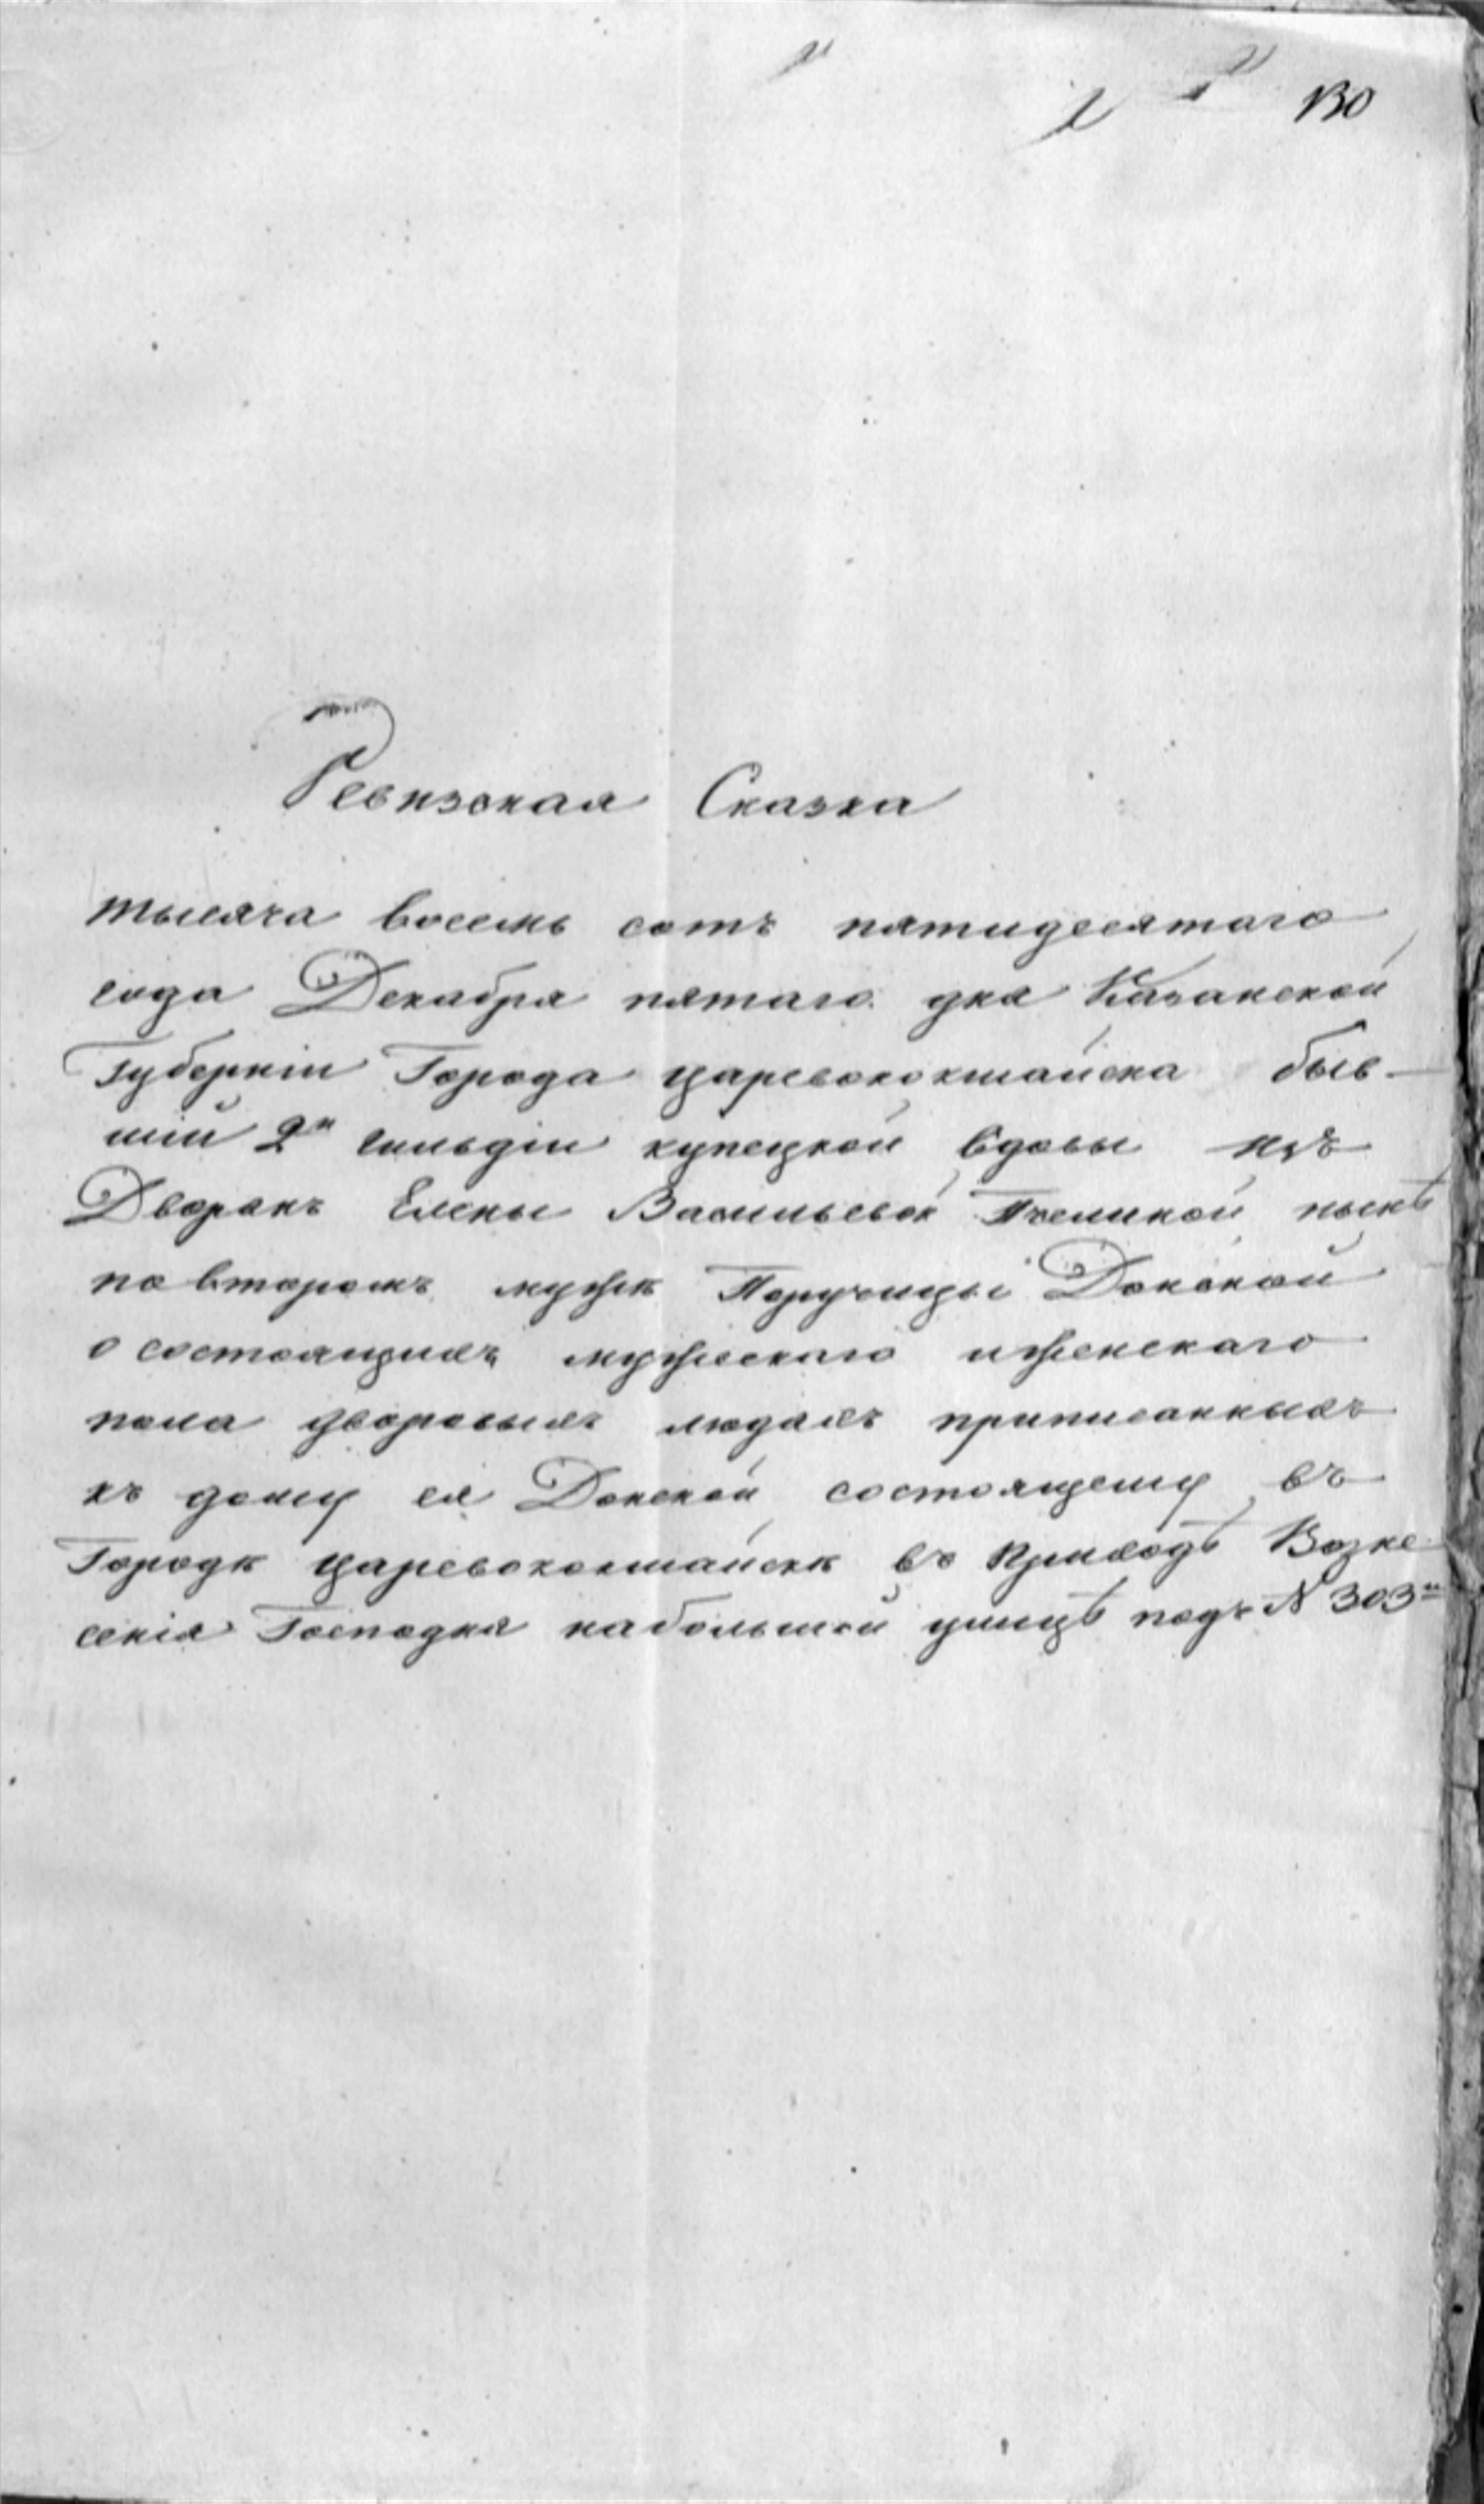 130
Ревизская Сказка
тысяча восемь сотъ пятидесятаго
года Декабря пятаго дня Казанской
Губерніи Города царевококшайска быв-
шій 2й гильдіи купецкой вдовы изъ
Дворянъ Елены Васильевой Пчелиной нынѣ
по второмъ мужѣ Поручицы Донской
о состоящихъ мужескаго и женскаго
пола дворовыхъ людяхъ приписанныхъ
къ дому ея Донской состоящему въ
Городѣ царевококшайскѣ въ приходѣ Возне
сенія Господня на большой улицѣ подъ N 303м